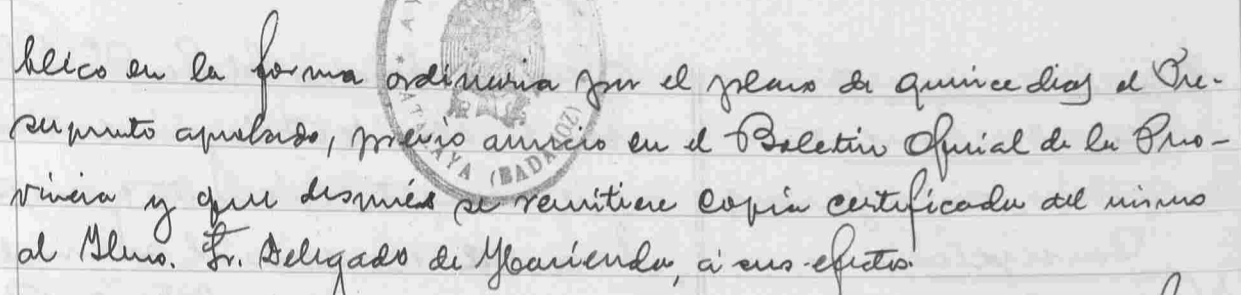 blico en la forma ordinaria por el plazo de quince dias el Pre-
supuesto aprobado, previo anuncio en el Boletin Oficial de la Pro-
vincia y que después se remitiere copia certificada del mismo
al Ilmo. Sr. Delegado de Hacienda, á sus efectos.
ATALAYA (BADAJOZ)